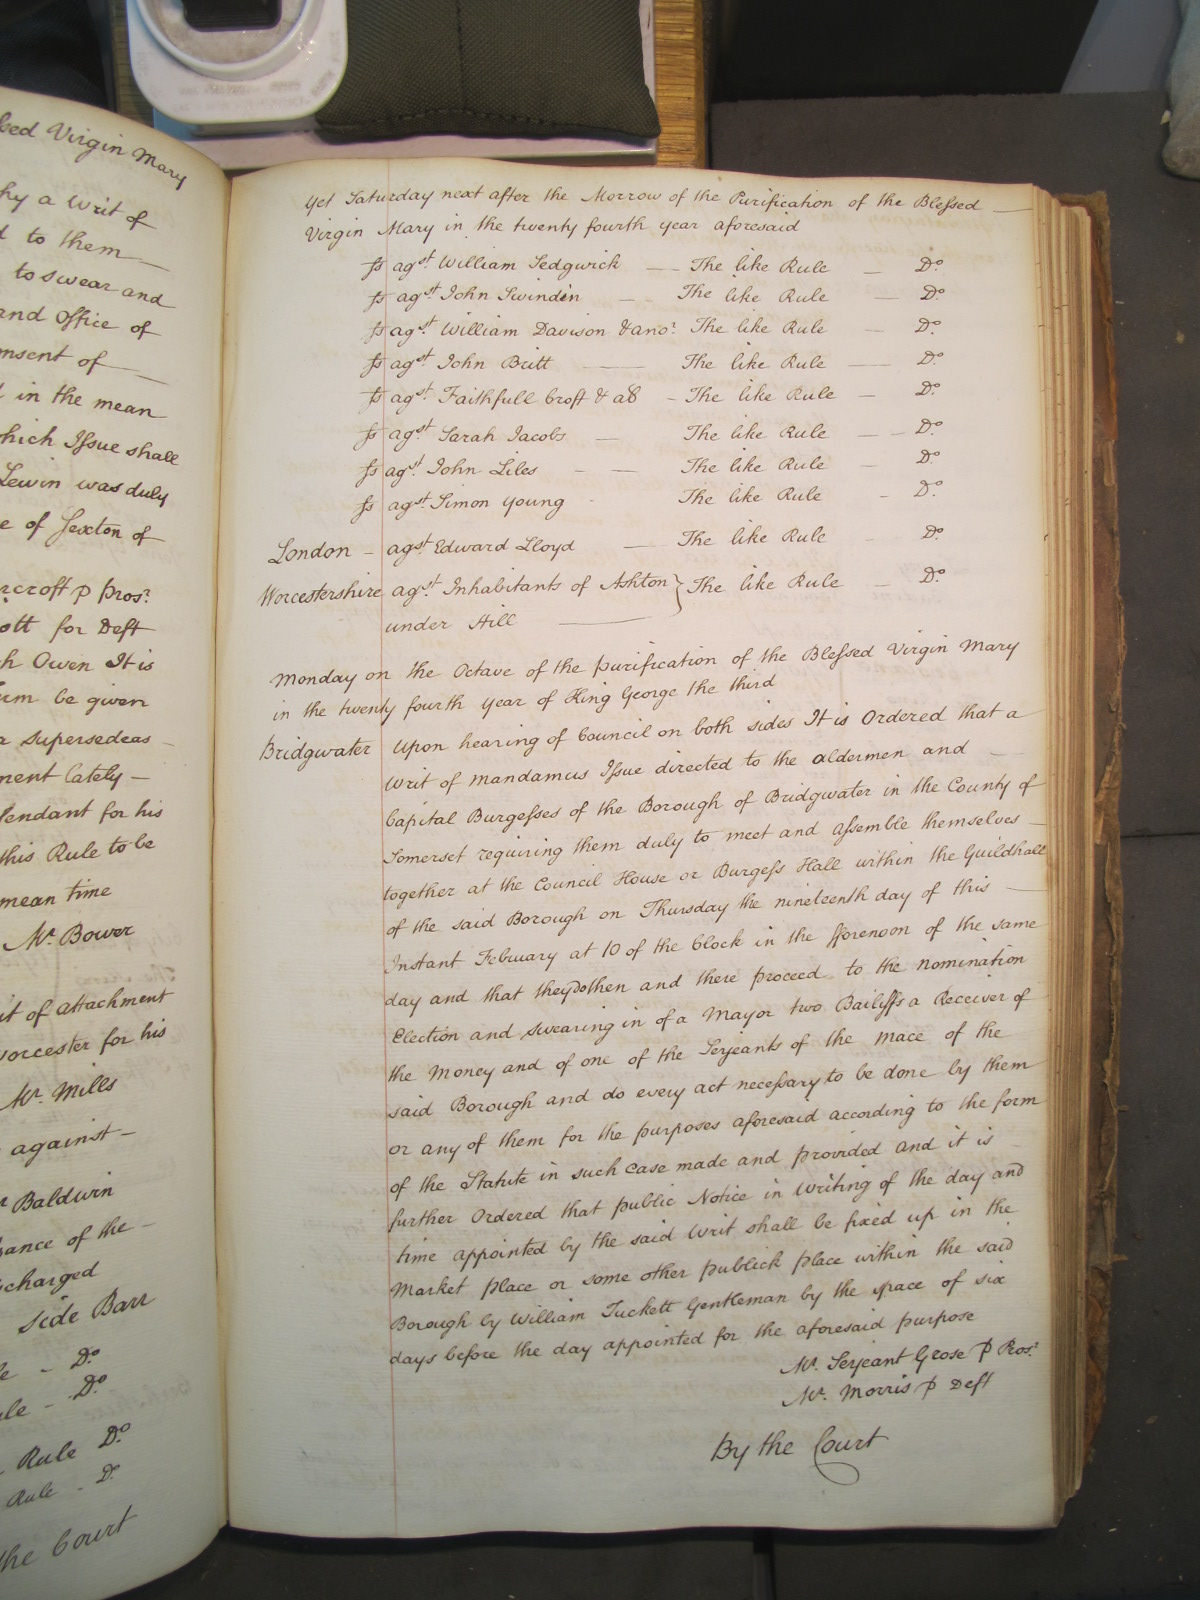 ssed Virgin Mary
hy a Writ of
d to them
to swear and
and Office of
nsent of
d in the mean
which Issue shall
Lewin was duly
e of Sexton of
rcroft p Pros.r
ott for Deft
h Owen It is
um be given
a supersedeas
ment lately
fendant for his
this Rule to be
mean time
Mr. Bower
it of attachment
worcester for his
Mr. Mills
against
r Baldwin
ance of the
scharged
side Barr
le - Do.
ule - Do.
Rule Do.
Rule - Do.
the Court
Yet Saturday next after the Morrow of the Purification of the Blessed
Virgin Mary in the twenty fourth year aforesaid
ss agst. William Sedgwick — The like Rule — Do.
ss agst. John Swinden — The like Rule — Do.
ss agst. William Davison & anor. The like Rule — Do.
ss agst. John Britt — The like Rule — Do.
ss agst. Faithfull Croft & als — The like Rule — Do.
ss agst. Sarah Jacobs — The like Rule — Do.
ss agst. John Liles — The like Rule — Do.
ss agst. Simon Young - The like Rule — Do.
London - agst. Edward Lloyd — The like Rule — Do.
Worcestershire agst. Inhabitants of Ashton } The like Rule — Do.
under Hill
Monday on the Octave of the purification of the Blessed Virgin Mary
in the twenty fourth year of King George the third
Bridgwater Upon hearing of Council on both sides It is Ordered that a
Writ of mandamus Issue directed to the aldermen and
Capital Burgesses of the Borough of Bridgwater in the County of
Somerset requiring them duly to meet and assemble themselves
together at the Council House or Burgess Hall within the Guildhall
of the said Borough on Thursday the nineteenth day of this
Instant February at 10 of the Clock in the fforenoon of the same
day and that they do then and there proceed to the nomination
Election and swearing in of a Mayor two Bailiffs a Receiver of
the Money and of one of the Serjeants of the mace of the
said Borough and do every act necessary to be done by them
or any of them for the purposes aforesaid according to the form
of the Statute in such case made and provided and it is
further Ordered that public Notice in Writing of the day and
time appointed by the said Writ shall be fixed up in the
Market place or some other publick place within the said
Borough by William Tuckett Gentleman by the space of six
days before the day appointed for the aforesaid purpose
Mr. Serjeant Grose p Prosr.
Mr. Morris p Deft
By the Court